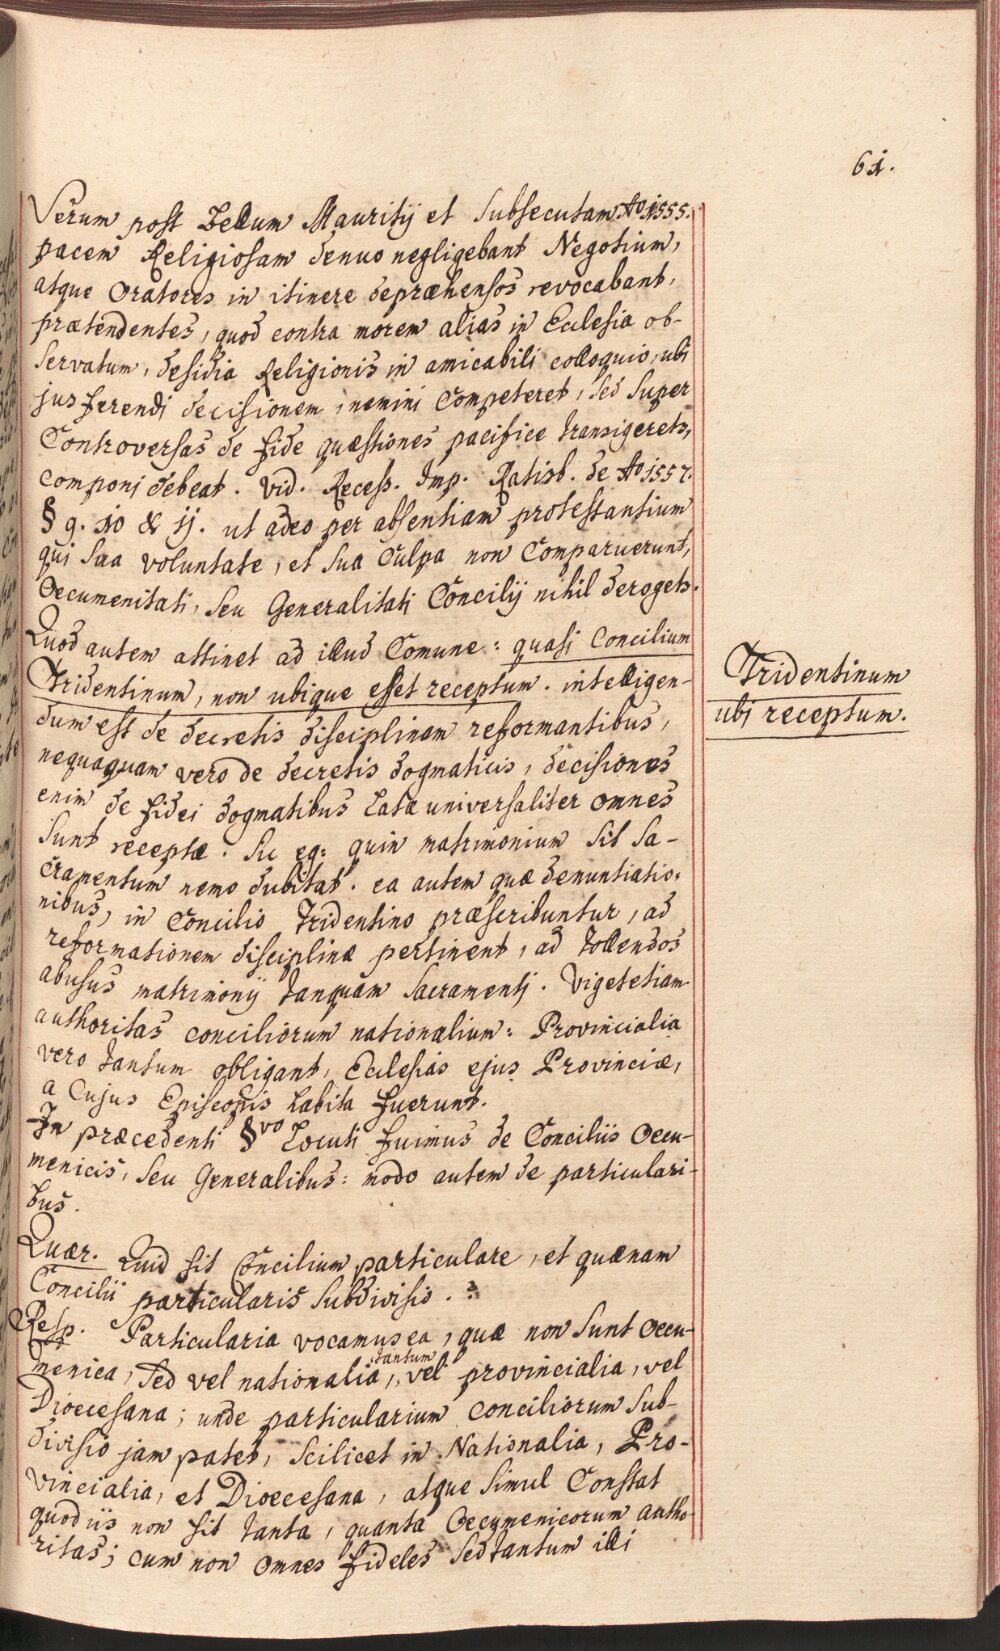 61.
Verum post bellum Mauritij et subsecutam Ao 1555.
pacem Religiosam denuo negligebant Negotium,
atque Oratores in itinere depræhensos revocabant,
prætendentes, quod contra morem alias in Ecclesia ob-
servatum, desidia Religionis in amicabili colloquio, ubi
jus ferendi decisionem, nemini Competeret, sed super
Controversas de fide quæstiones pacifice transigeret,
componi debeat. vid. Recess. Imp. Ratisb. de Ao 1557.
§ 9. 10 & 11. ut adeo per absentiam protestantium
qui sua voluntate, et sua Culpa non Comparuerunt,
Oecumenitati, seu Generalitati Concilij nihil deroget.
Quod autem attinet ad illud Comune: quasi Concilium
Tridentinum, non ubique esset receptum. intelligen-
dum est de decretis disciplinam reformantibus,
nequaquam vero de decretis dogmaticis, decisiones
enim de fidei dogmatibus latæ universaliter omnes
sunt receptæ. sic eg: quin matrimonium sit Sa-
cramentum nemo dubitat. ea autem quæ denuntiatio-
nibus, in Concilio Tridentino præscribuntur, ad
reformationem disciplinæ pertinent, ad tollendos
abusus matrimonij tanquam Sacramenti. Viget etiam
authoritas conciliorum nationalium: Provincialia
vero tantum obligant, Ecclesias ejus Provinciæ,
a Cujus Episcopis habita fuerunt.
In præcedenti §vo Locuti fuimus de Conciliis Oecu-
menicis, seu Generalibus: modo autem de particulari-
bus.
Quær. Quid sit Concilium particulare, et quænam
Concilii particularis subdivisio. ?
Resp. Particularia vocamus ea, quæ non sunt Oecu-
menica, sed vel nationalia tantum, vel provincialia, vel
Dioecesana; unde particularium conciliorum sub-
divisio jam patet, scilicet in Nationalia, Pro-
vincialia, et Dioecesana, atque simul Constat
quod iis non sit tanta, quanta Oecumenicorum autho-
ritas; cum non omnes fideles sed tantum illi
Tridentinum
ubi receptum.